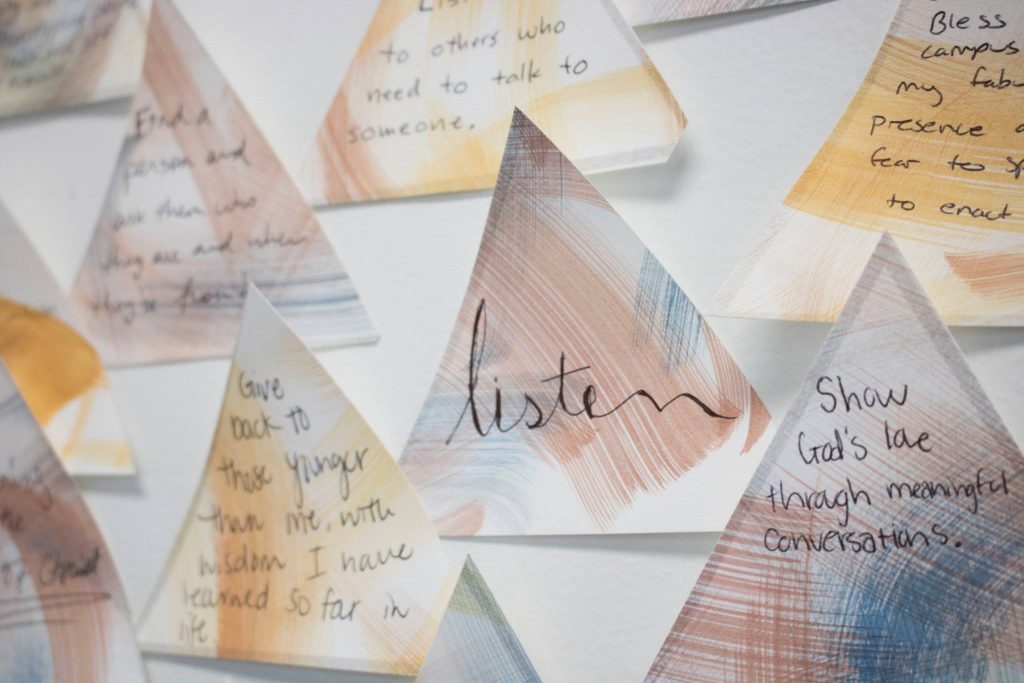 to others who
need to talk to
someone.
Find a
person and
ask them who
they are and where
they're from!
Bless
campus
my fabu
presence
fear to sp
to enact
listen
Give
back to
those younger
than me, with
wisdom I have
learned so far in
life.
Show
God's love
through meaningful
conversations.
of Christ